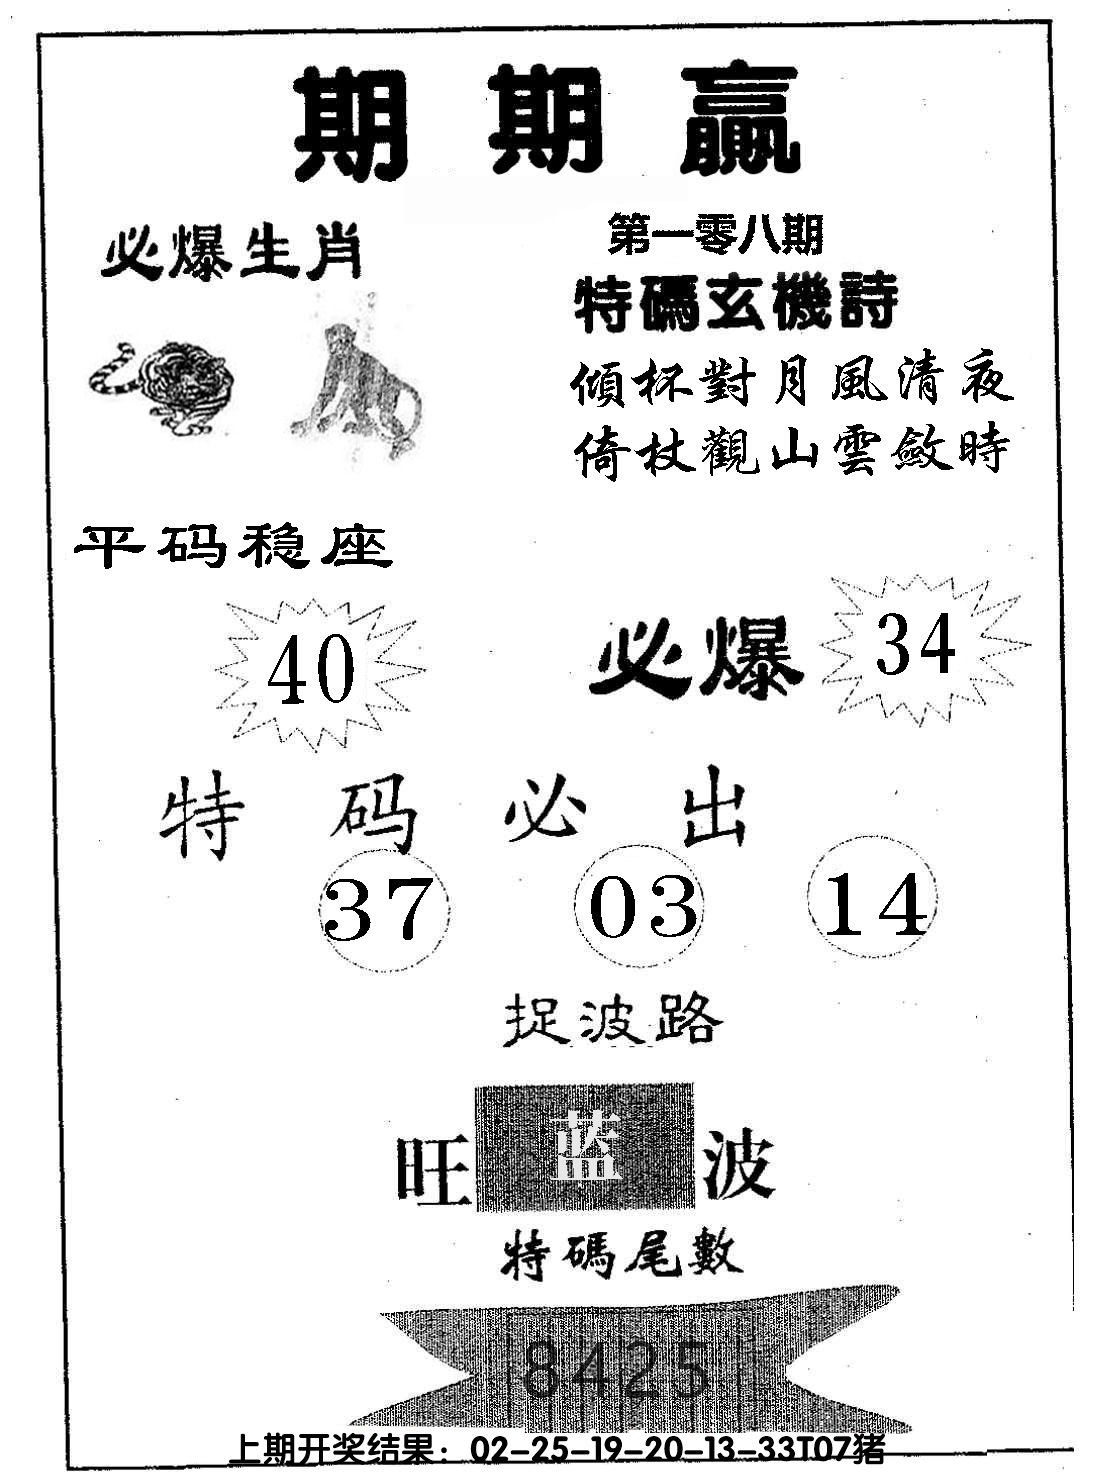 期期贏
必爆生肖
第一零八期
特碼玄機詩
傾杯對月風清夜
倚杖觀山雲斂時
平码稳座
40
必爆 34
特码必出
37 03 14
捉波路
旺 蓝 波
特碼尾數
8425
上期开奖结果：02-25-19-20-13-33T07猪